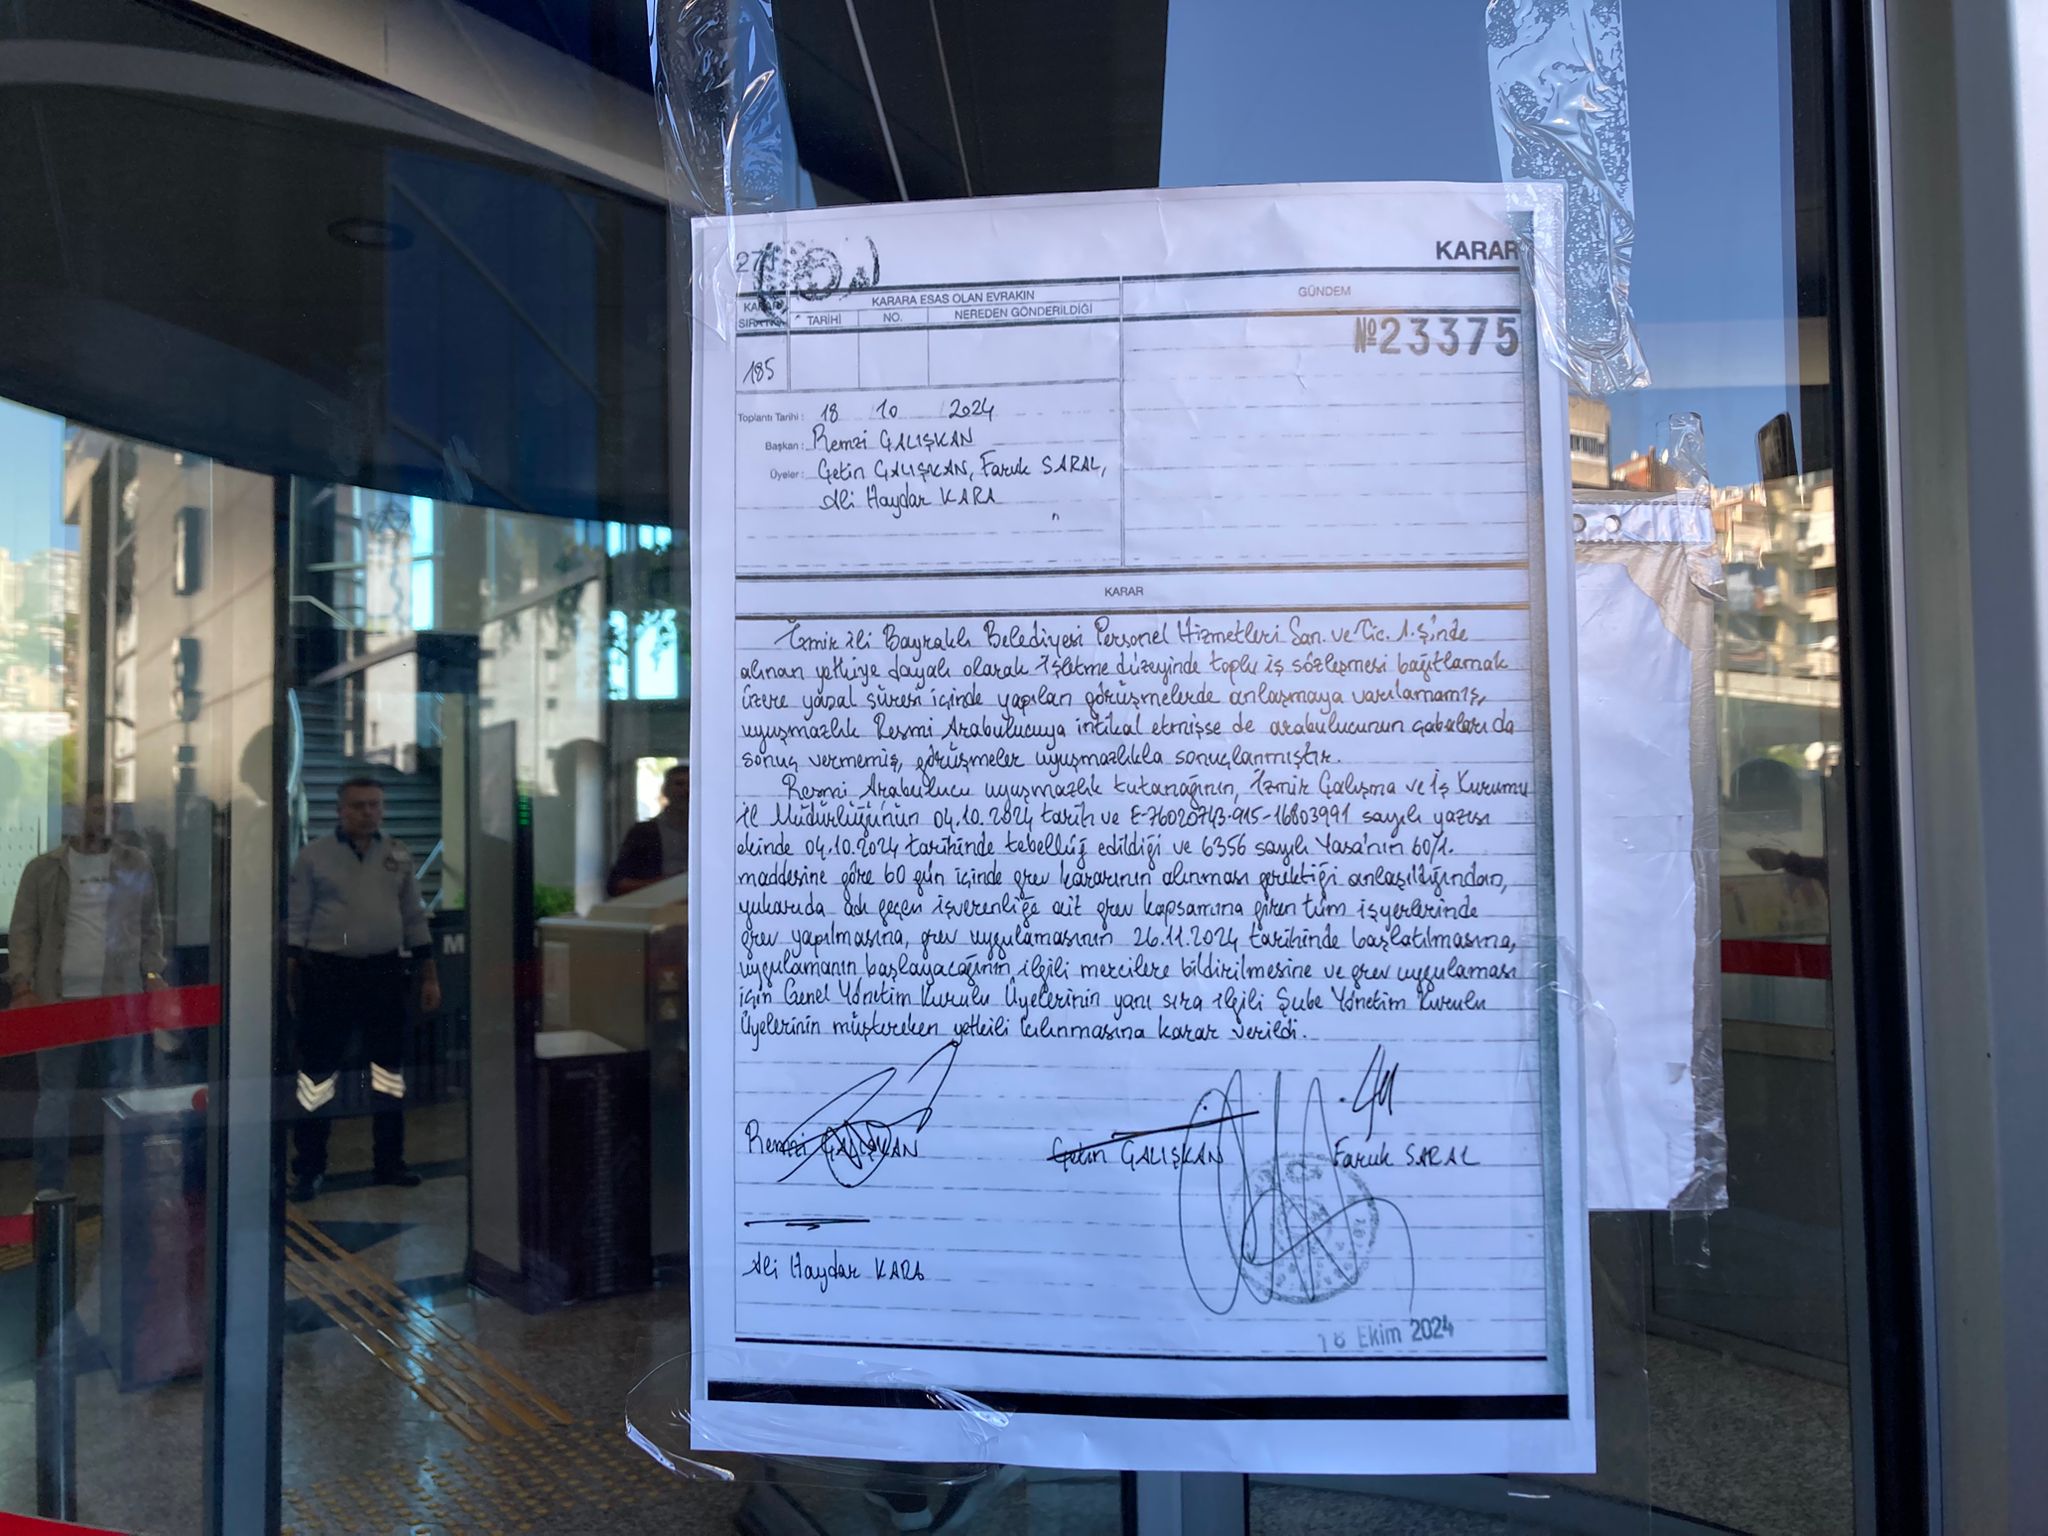 KARAR
27
KARARA ESAS OLAN EVRAKIN
GÜNDEM
KARAR
SIRA NO.
TARİHİ
NO.
NEREDEN GÖNDERİLDİĞİ
№ 23375
185
Toplantı Tarihi : 18 10 2024
Başkan : Remzi ÇALIŞKAN
Üyeler : Çetin ÇALIŞKAN, Faruk SARAL,
Ali Haydar KARA
KARAR
İzmir ili Bayraklı Belediyesi Personel Hizmetleri San. ve Tic. A.Ş'inde
alınan yetkiye dayalı olarak İşletme düzeyinde toplu iş sözleşmesi bağıtlamak
üzere yasal süresi içinde yapılan görüşmelerde anlaşmaya varılamamış,
uyuşmazlık Resmi Arabulucuya intikal etmişse de arabulucunun çabaları da
sonuç vermemiş, görüşmeler uyuşmazlıkla sonuçlanmıştır.
Resmi Arabulucu uyuşmazlık tutanağının, İzmir Çalışma ve İş Kurumu
İl Müdürlüğünün 04.10.2024 tarih ve E-76020743-915-16803991 sayılı yazısı
ekinde 04.10.2024 tarihinde tebellüğ edildiği ve 6356 sayılı Yasa'nın 60/1.
maddesine göre 60 gün içinde grev kararının alınması gerektiği anlaşıldığından,
yukarıda adı geçen işverenliğe ait grev kapsamına giren tüm işyerlerinde
grev yapılmasına, grev uygulamasının 26.11.2024 tarihinde başlatılmasına,
uygulamanın başlayacağının ilgili mercilere bildirilmesine ve grev uygulaması
için Genel Yönetim Kurulu Üyelerinin yanı sıra ilgili Şube Yönetim Kurulu
Üyelerinin müştereken yetkili kılınmasına karar verildi.
Remzi ÇALIŞKAN
Çetin ÇALIŞKAN
Faruk SARAL
Ali Haydar KARA
18 Ekim 2024